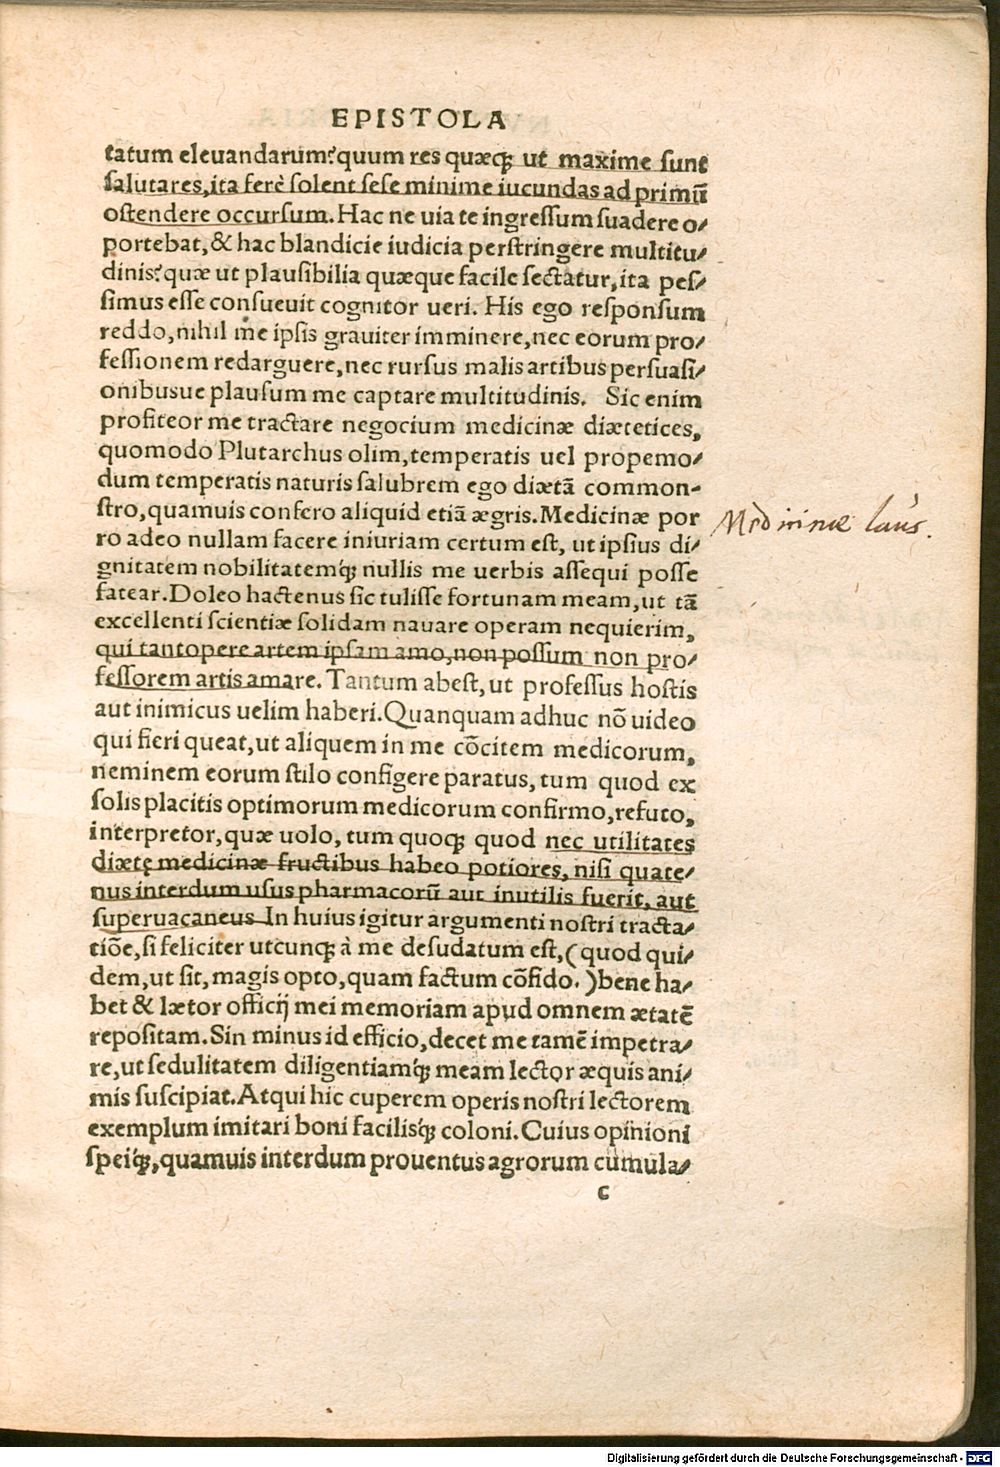 EPISTOLA
tatum eleuandarum?quum res quæcꝙ ut maxime sunt
salutares,ita ferè solent sese minime iucundas ad primũ
ostendere occursum. Hac ne uia te ingressum suadere o⸗
portebat,& hac blandicie iudicia perstringere multitu⸗
dinis?quæ ut plausibilia quæque facile sectatur,ita pes⸗
simus esse consueuit cognitor ueri. His ego responsum
reddo,nihil me ipsis grauiter imminere,nec eorum pro⸗
fessionem redarguere,nec rursus malis artibus persuasi⸗
onibusue plausum me captare multitudinis. Sic enim
profiteor me tractare negocium medicinæ diætetices,
quomodo Plutarchus olim,temperatis uel propemo⸗
dum temperatis naturis salubrem ego diætã common-
stro,quamuis confero aliquid etiã ægris.Medicinæ por
Medicinae laus.
ro adeo nullam facere iniuriam certum est, ut ipsius di⸗
gnitatem nobilitatemꝙ nullis me uerbis assequi posse
fatear.Doleo hactenus sic tulisse fortunam meam,ut tã
excellenti scientiæ solidam nauare operam nequierim,
qui tantopere artem ipsam amo,non possum non pro⸗
fessorem artis amare. Tantum abest,ut professus hostis
aut inimicus uelim haberi.Quanquam adhuc nõ uideo
qui fieri queat,ut aliquem in me cõcitem medicorum,
neminem eorum stilo configere paratus, tum quod ex
solis placitis optimorum medicorum confirmo,refuto,
interpretor,quæ uolo, tum quoqꝫ quod nec utilitates
diætę medicinæ fructibus habeo potiores, nisi quate⸗
nus interdum usus pharmacorũ aut inutilis fuerit, aut
superuacaneus In huius igitur argumenti nostri tracta⸗
tiõe,si feliciter utcunqꝫ à me desudatum est,(quod qui⸗
dem,ut sit,magis opto,quam factum cõfido.)bene ha⸗
bet & lætor officij mei memoriam apud omnem ætatẽ
repositam.Sin minus id efficio,decet me tamẽ impetra⸗
re,ut sedulitatem diligentiamqꝫ meam lector æquis ani⸗
mis suscipiat.Atqui hic cuperem operis nostri lectorem
exemplum imitari boni facilisqꝫ coloni.Cuius opinioni
speiqꝫ,quamuis interdum prouentus agrorum cumula⸗
c
Digitalisierung gefördert durch die Deutsche Forschungsgemeinschaft - DFG